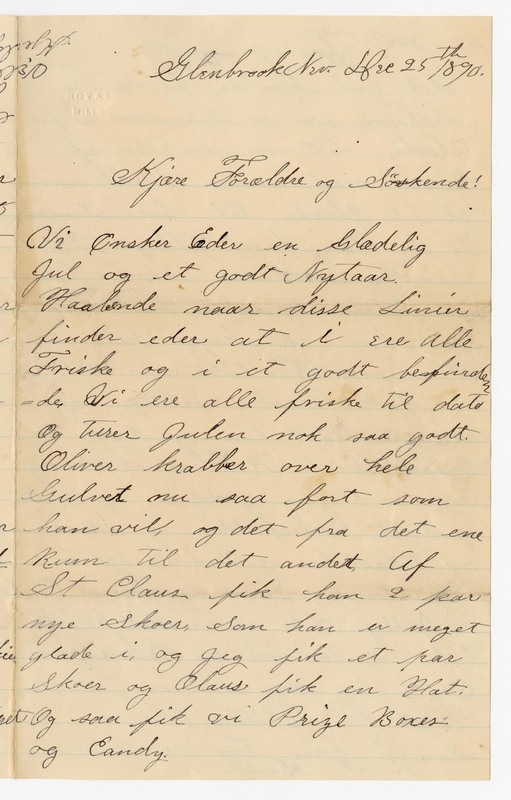 Glenbrook Nev. Dec 25th 1890.
Kjære Forældre og Söskende!
Vi Ønsker Eder en Glædelig
Jul og et godt Nytaar.
Haabende naar disse Linier
finder eder at i ere alle
Friske og i et godt befinden-
=de, Vi ere alle friske til dato
Og turer Julen nok saa godt.
Oliver krabber over hele
Gulvet nu saa fort som
han vil, og det fra det ene
Rum til det andet, Af
St Claus fik han 2 par
nye Skoer, som han er meget
glade i, og Jeg fik et par
Skoer og Claus fik en Hat.
Og saa fik vi Prize Boxes
og Candy.